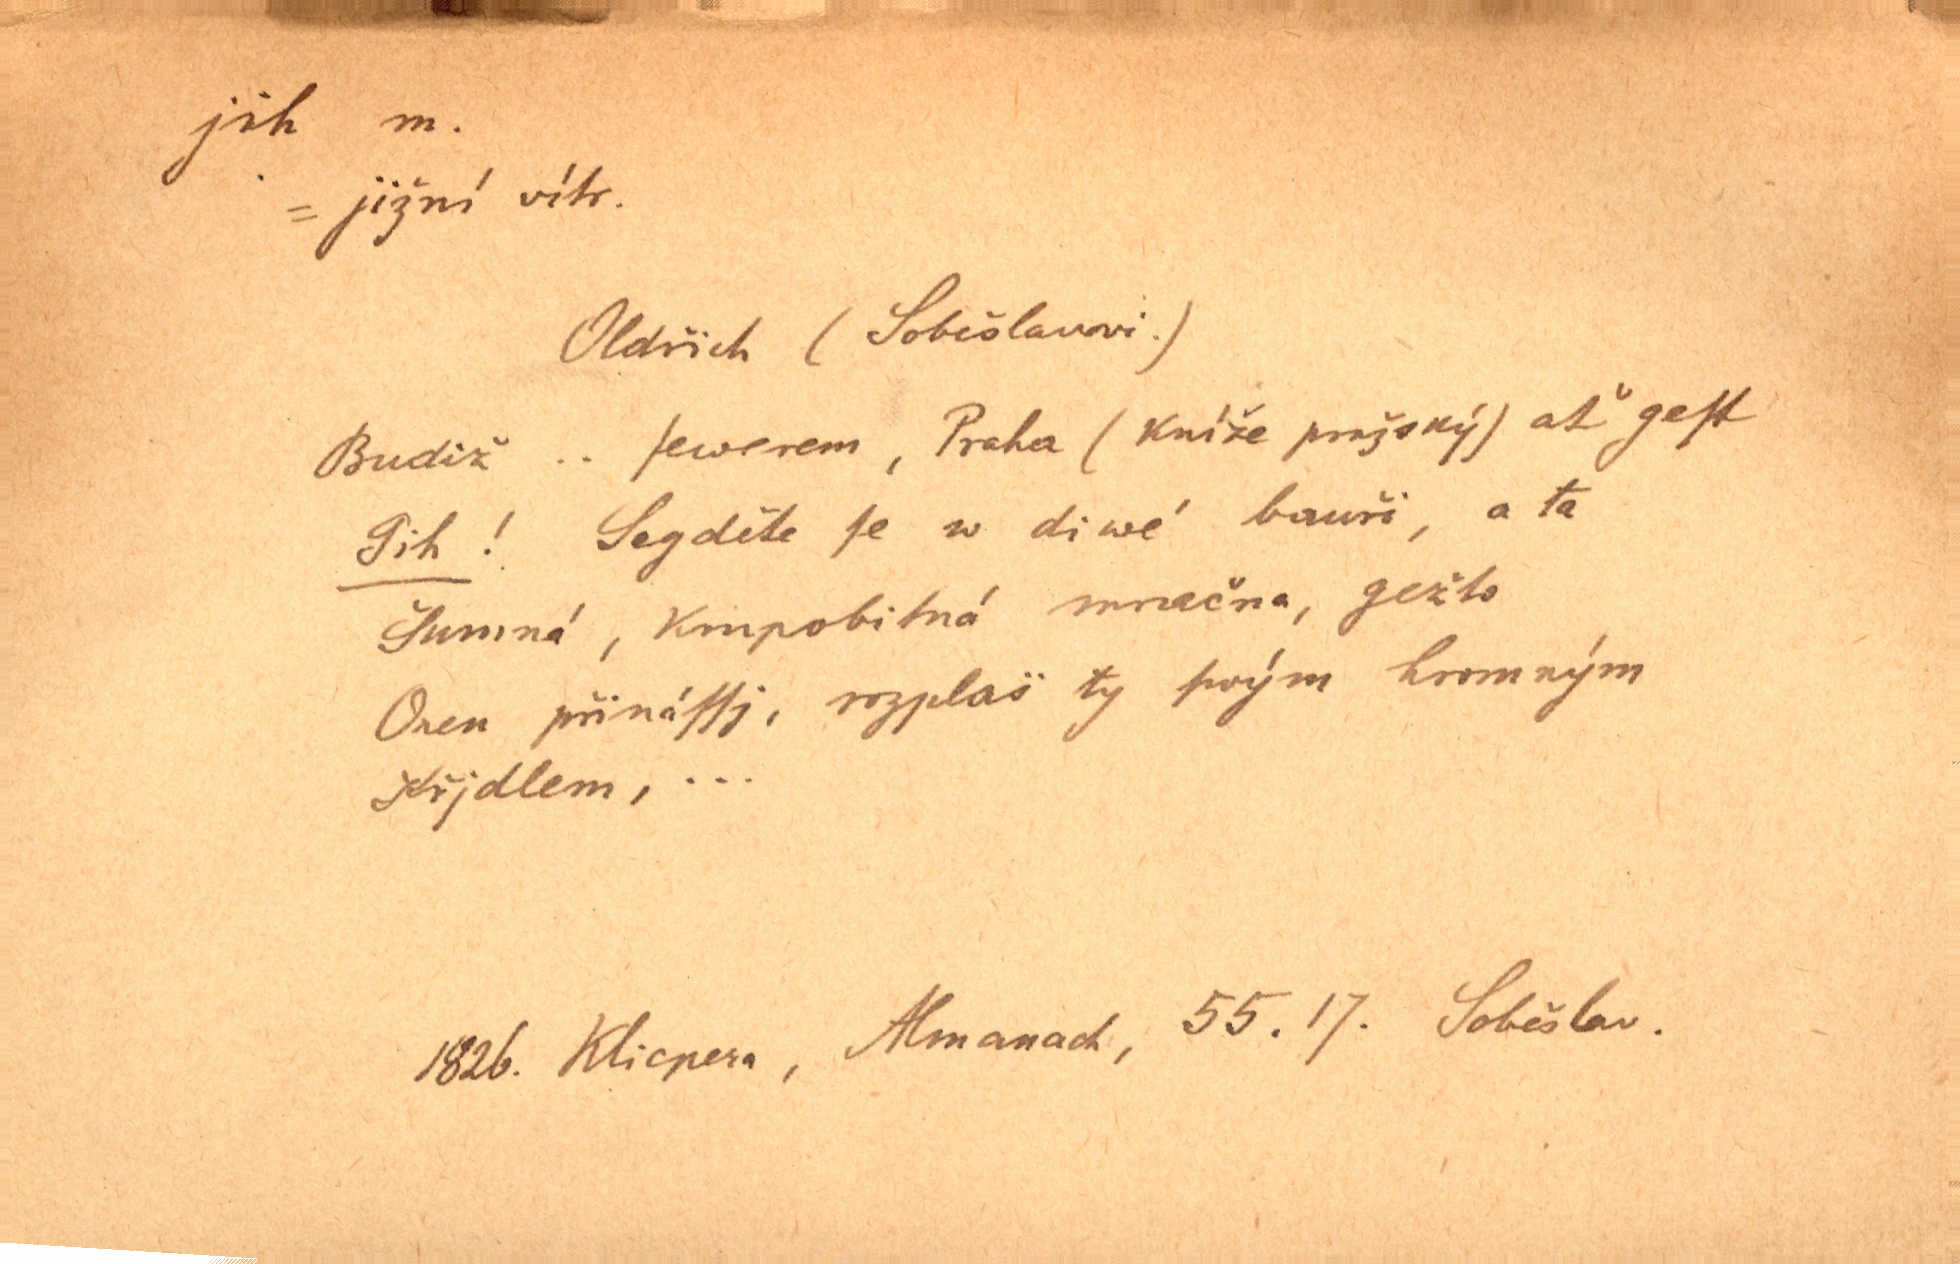 jih m.
= jižní vítr.
Oldřich (Soběslavovi.)
Budiž .. ſewerem, Praha (kníže pražský) ať geſt
Gih! Segděte ſe w diwé bauři, a ta
Šumná, krupobitná mračna, gežto
Onen přináſſj, rozplaš ty ſwým hromným
Křjdlem, ...
1826. Klicpera, Almanach, 55. 17. Soběslav.